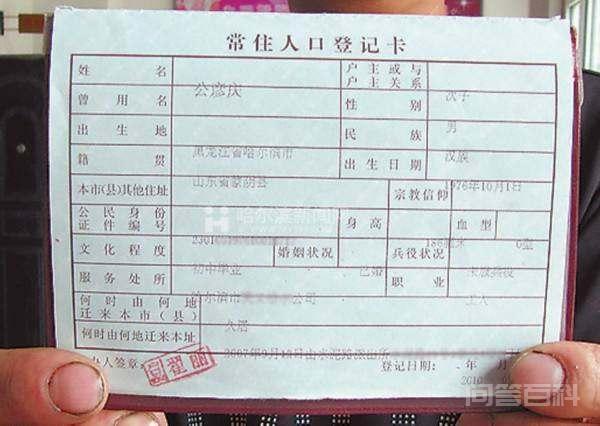 常住人口登记卡
姓名 公彦庆 户主或与户主关系 次子
曾用名 性别 男
出生地 黑龙江省哈尔滨市 民族 汉族
籍贯 山东省蒙阴县 出生日期 1976年10月1日
本市(县)其他住址 宗教信仰
公民身份证件编号 2301 身高 186厘米 血型 O型
文化程度 初中毕业 婚姻状况 已婚 兵役状况 未服兵役
服务处所 哈尔滨市 公司 职业 工人
何时由何地迁来本市(县) 久居
何时由何地迁来本址 2007年9月18日由水泥路
办人签章: 登记日期: 年 月
2010
哈尔滨新闻网
问答百科